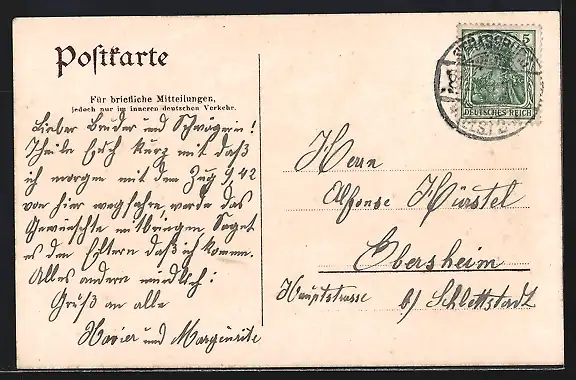 Postkarte
Für briefliche Mitteilungen,
jedoch nur im inneren deutschen Verkehr.
Lieber Bruder und Schwägerin!
Theile Euch kurz mit daß
ich morgen mit dem Zug 9 42
von hier wegfahre, werde das
Gewünschte mitbringen. Saget
es den Eltern daß ich komme.
Alles andere mündlich!
Gruß an alle
Xavier und Marguerite
5
DEUTSCHES REICH
STRASSBURG
(ELS.)
Herrn
Alfonse Hürstel
Ebersheim
Hauptstrasse b/ Schlettstadt